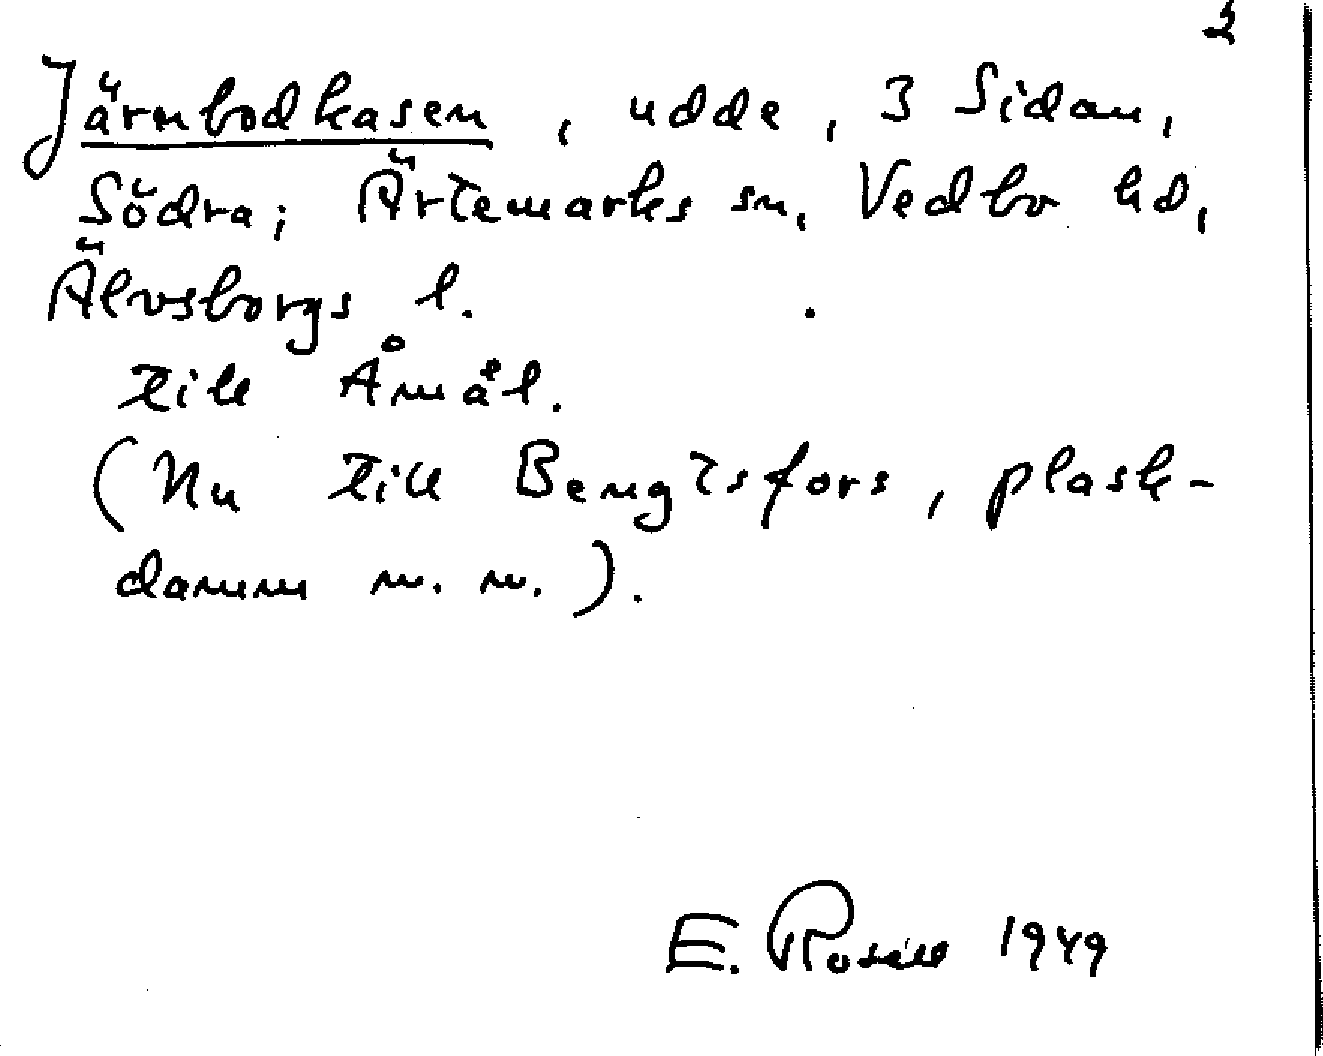 2
Järnbodkasen, udde, 3 Sidan,
Södra; Ärtemarks sn, Vedbo hd,
Älvsborgs l.
till Åmål.
(Nu till Bengtsfors, plask-
damm m. m.).
E. Rosell 1949